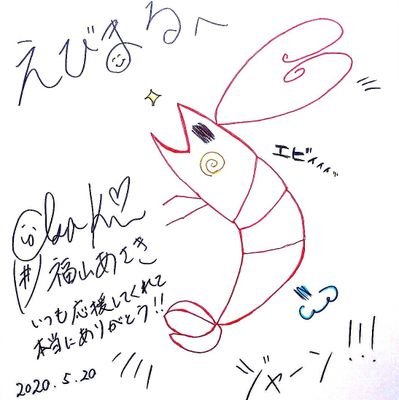 えびまるへ
エビィィィ
福山あさき
いつも応援してくれて
本当にありがとう!!
2020.5.20
ジャーン!!!